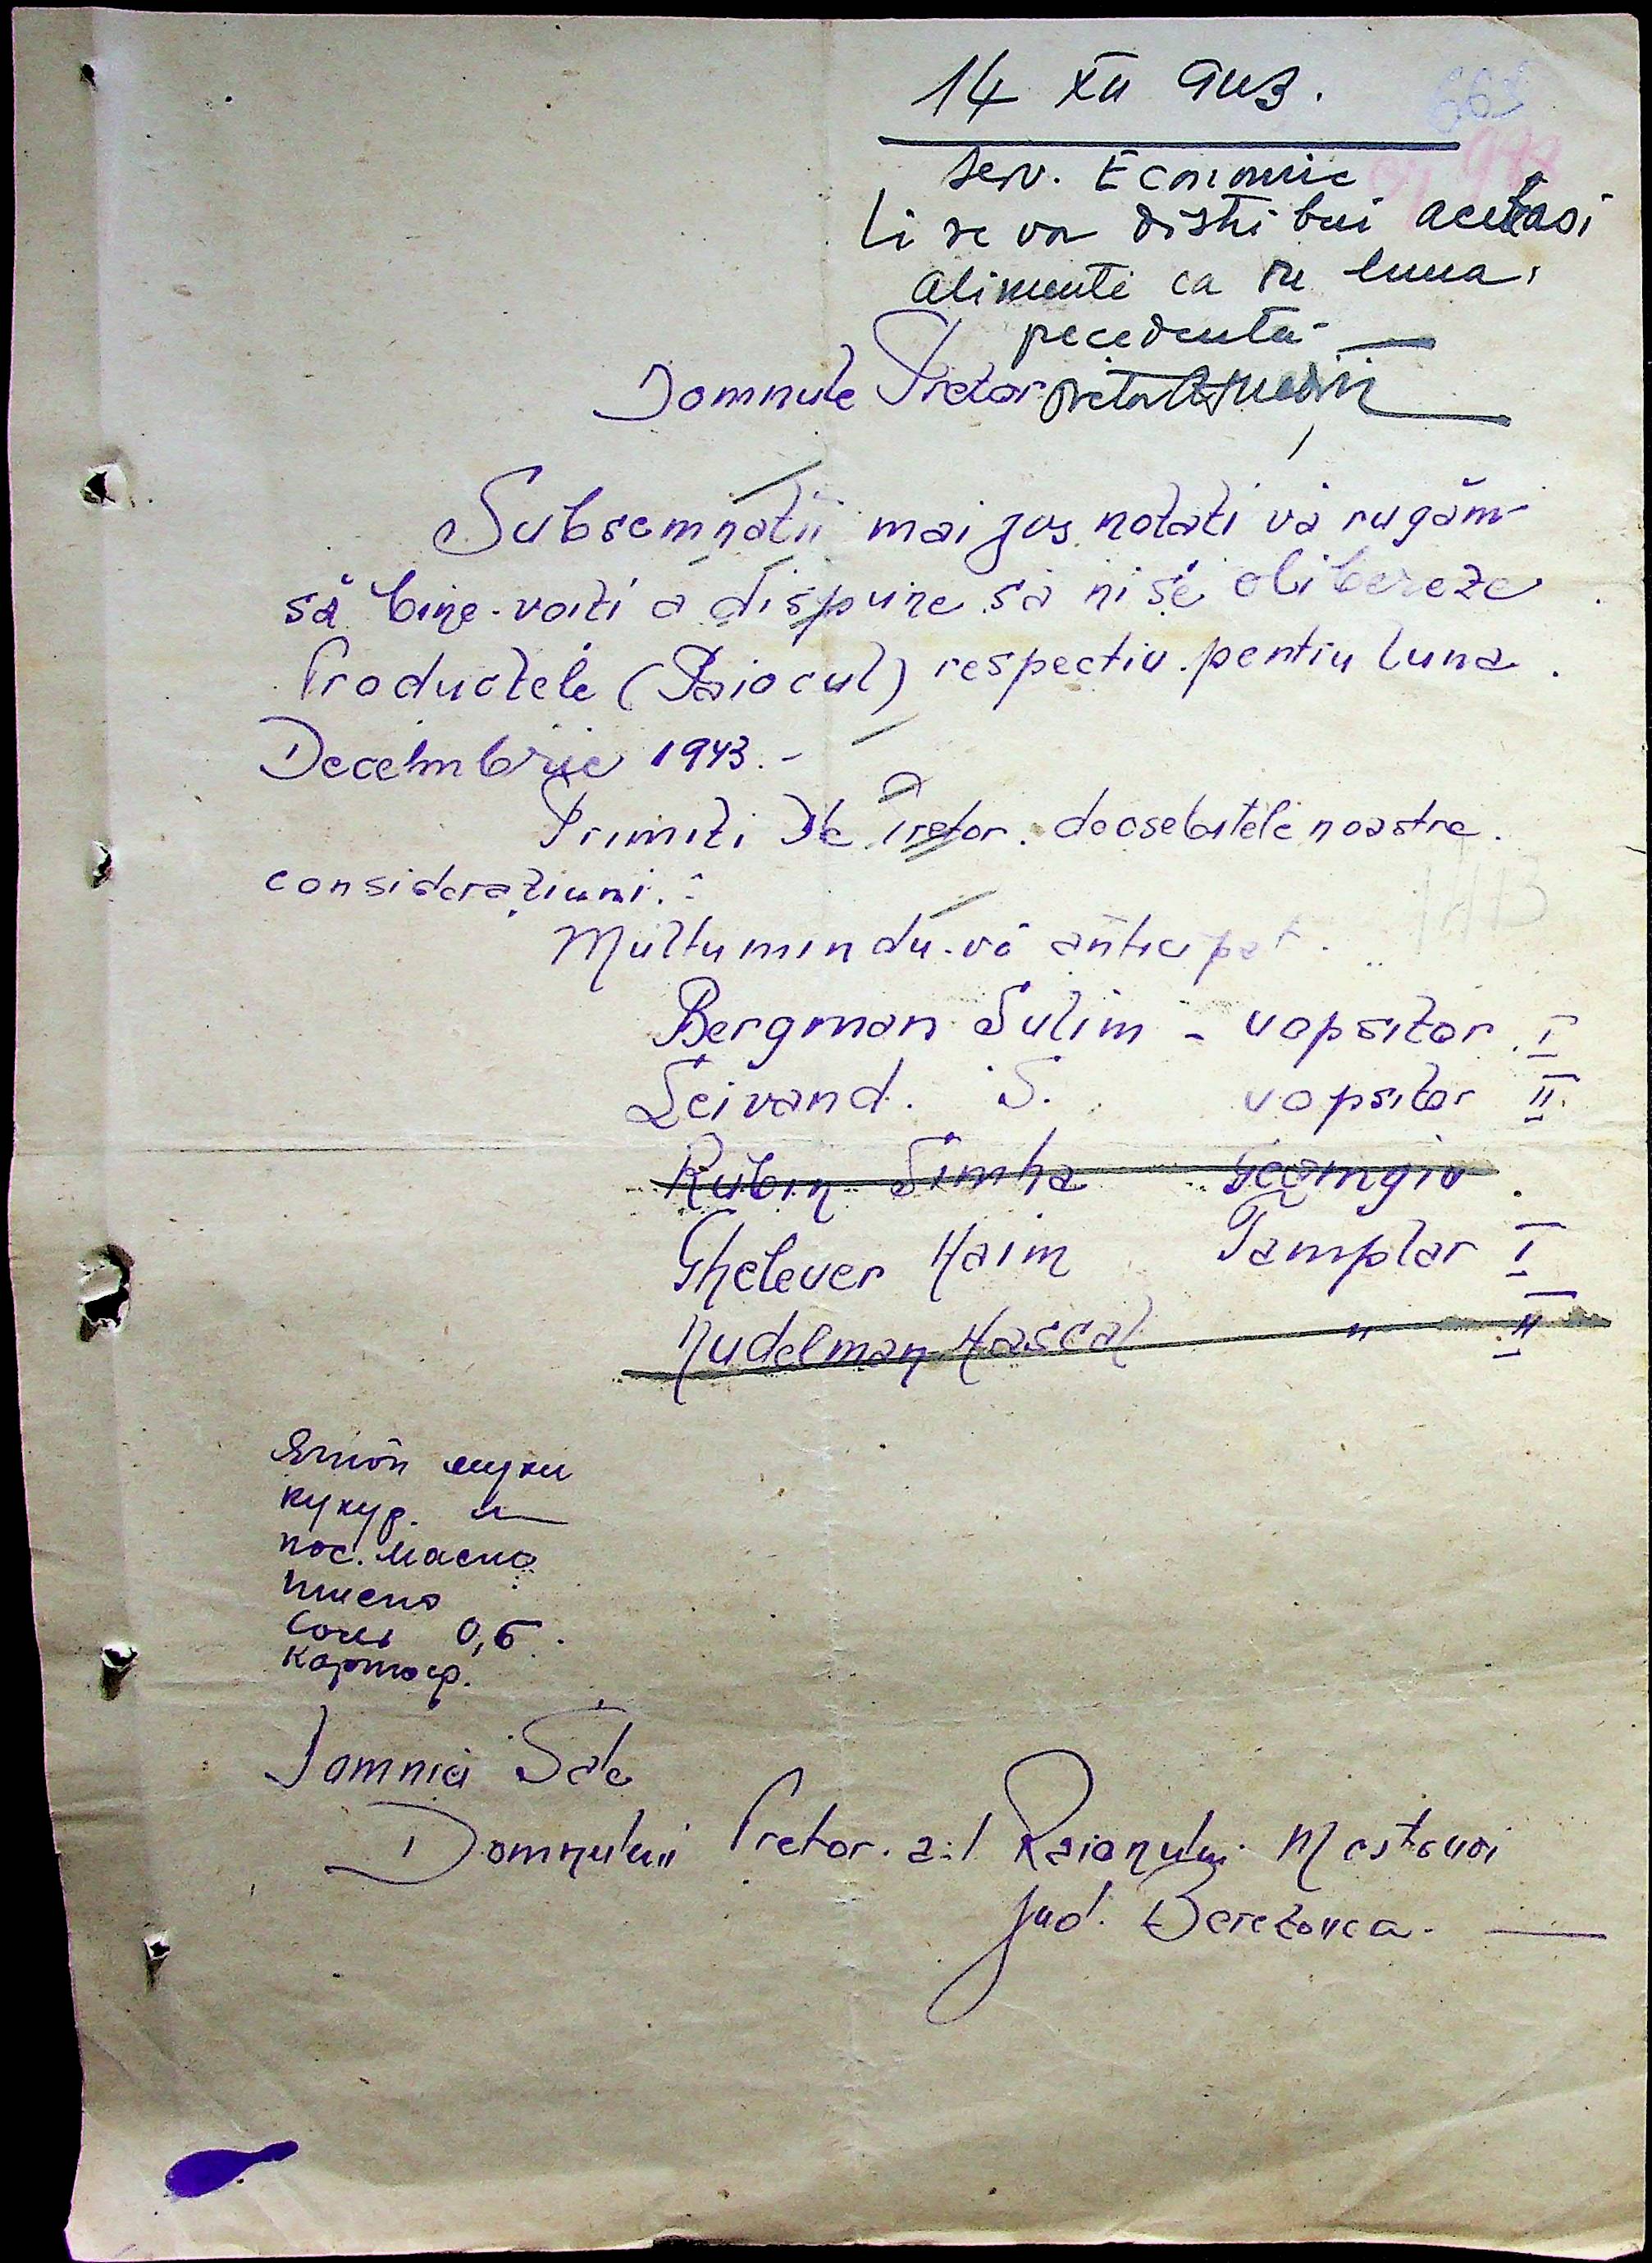 14 XII 943.
Serv. Economic
Li se va distribui aceleasi
alimente ca in luna
precedenta -
Domnule Pretor Pretor
Subsemnatii mai jos notati vă rugăm
să bine-voiti a dispune să ni se elibereze
Productele (Raiocul) respectiv pentru luna
Decembrie 1943. -
Primiti Dle Pretor deosebitele noastre
consideratiuni. -
Multumindu-vă anticipat.
Bergman Sulim - vopsitor I
Leivand. S. vopsitor II
Rubin Simha
Ghelever Haim Tamplar I
Nudelman Hascal " II
Ячмен муки
кукур. "
пос. масло
пшено
Соль 0,5.
картоф.
Domniei Sale
Domnului Pretor al Raionului Mostovoi
Jud. Berezovca. -